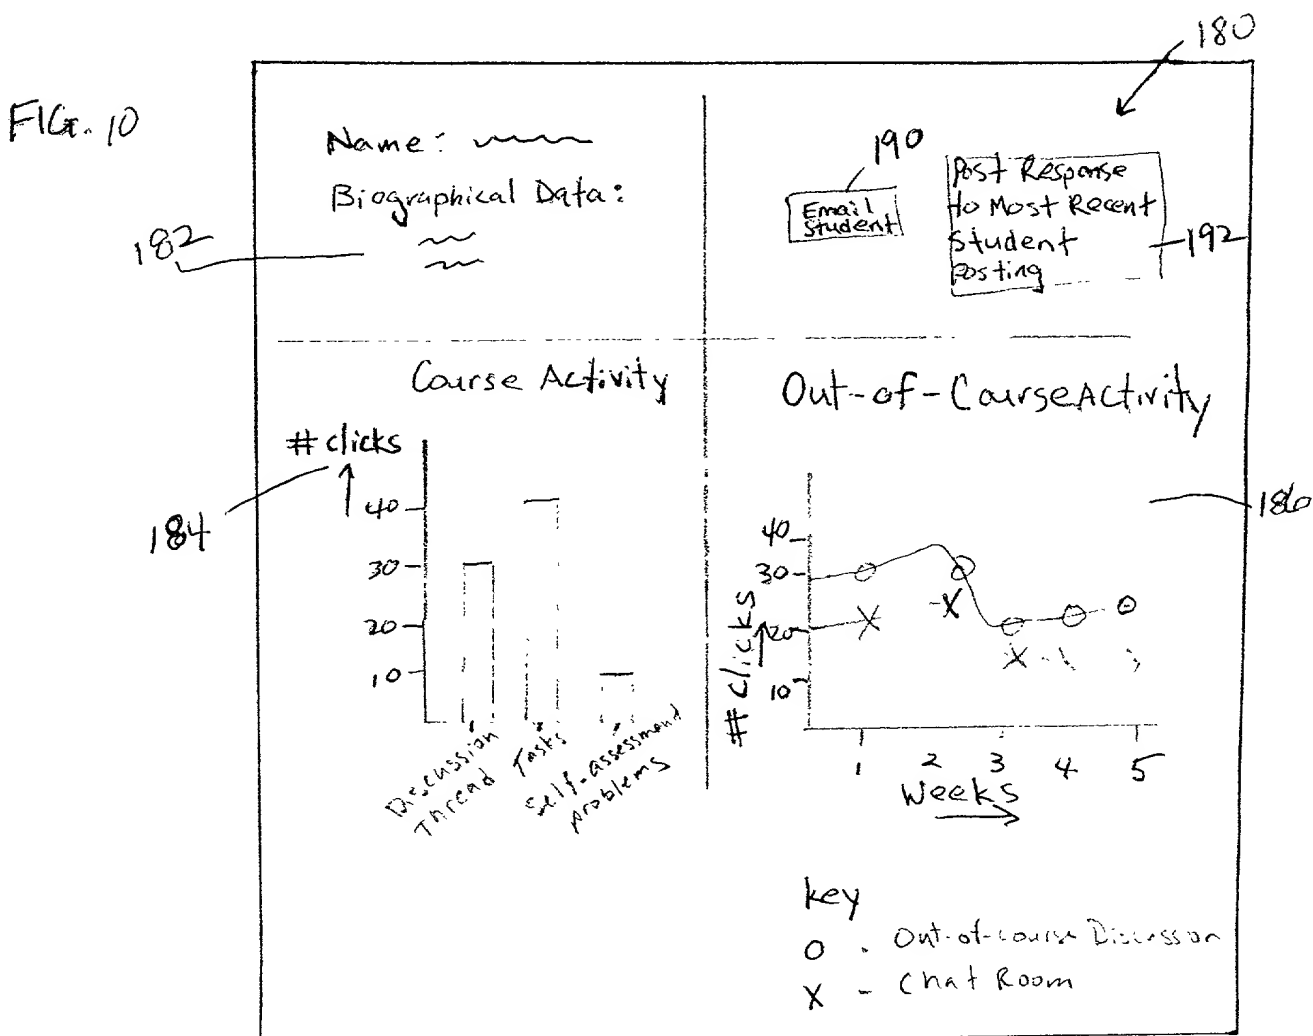 180
FIG. 10
Name:
Biographical Data:
182
190
Email
Student
Post Response
to Most Recent
Student
Posting
192
Course Activity
# clicks
184
40
30
20
10
Discussion
Thread
Tasks
Self-assessment
problems
Out-of-Course Activity
186
# clicks
40
30
20
10
1 2 3 4 5
Weeks
key
O - Out-of-course Discussion
X - Chat Room